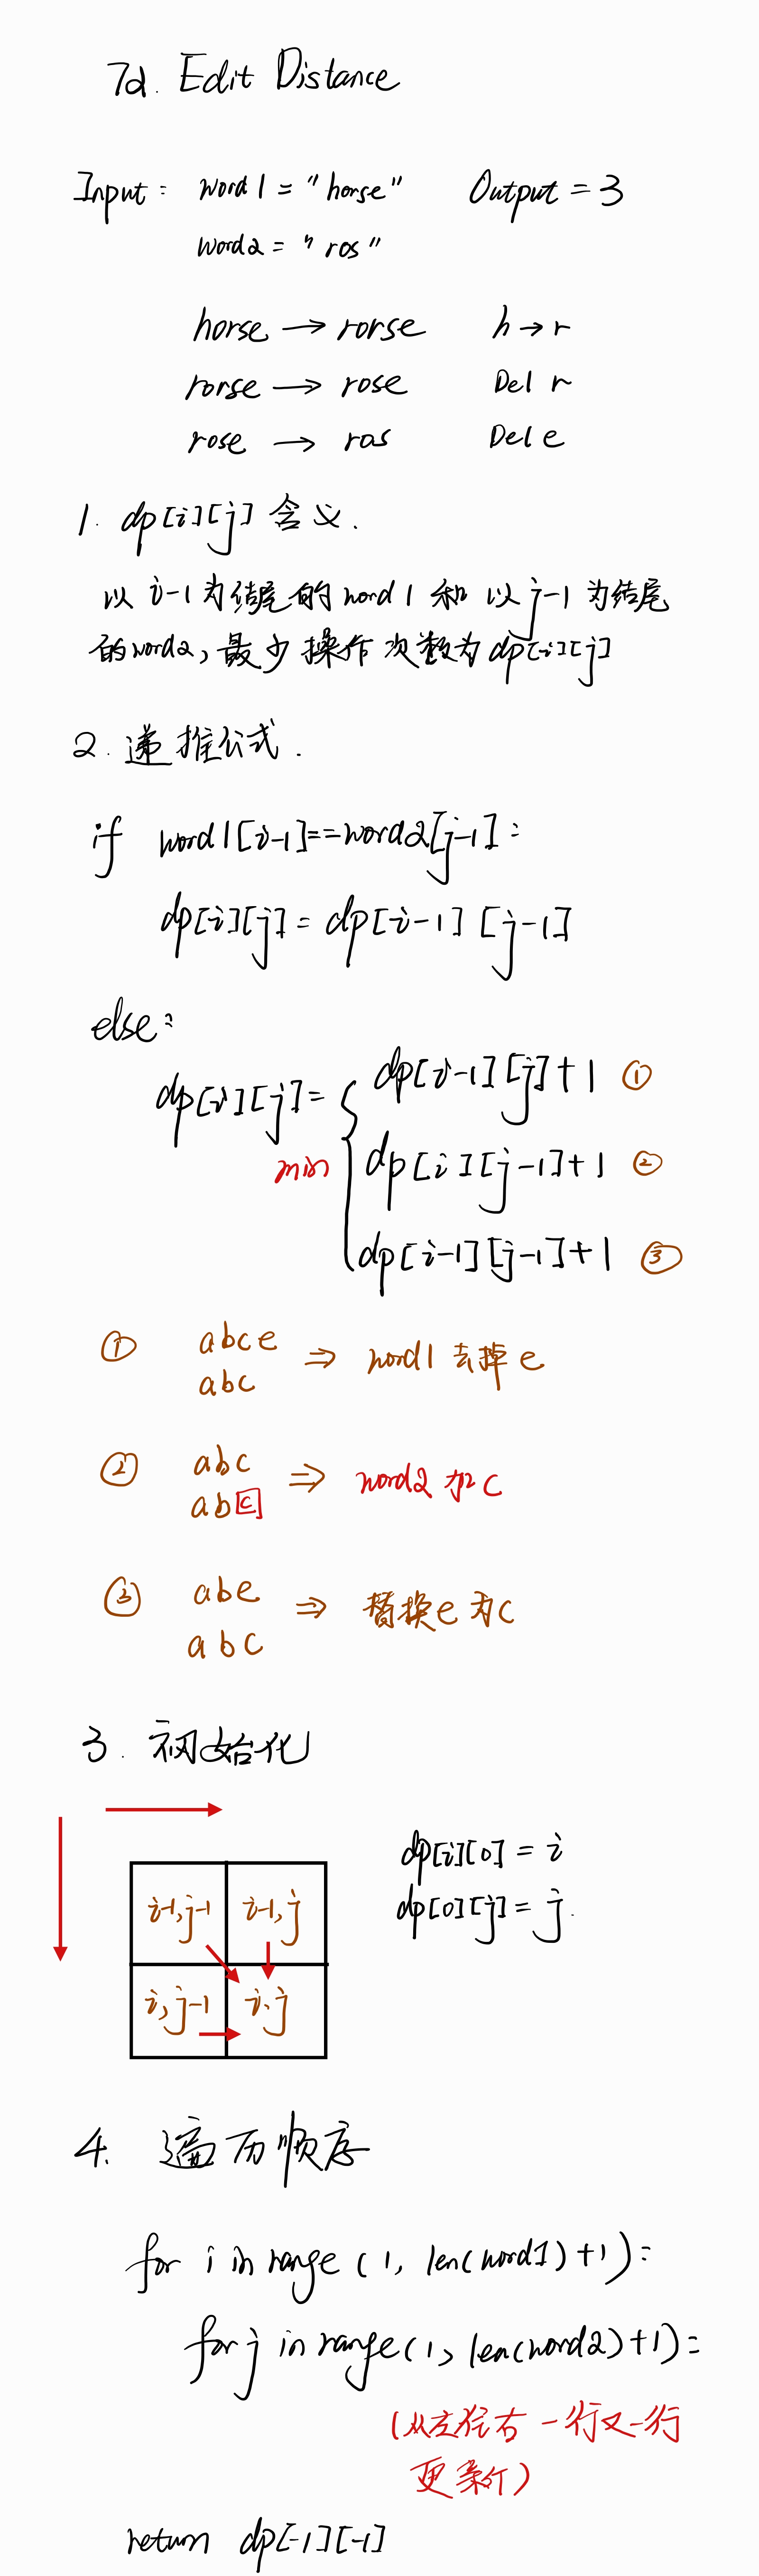 72. Edit Distance
Input: word1 = "horse" Output = 3
word2 = "ros"
horse → rorse h → r
rorse → rose Del r
rose → ros Del e
1. dp[i][j] 含义.
以 i-1 为结尾的 word1 和 以 j-1 为结尾
的 word2, 最少操作次数为 dp[i][j]
2. 递推公式.
if word1[i-1]==word2[j-1]:
dp[i][j] = dp[i-1][j-1]
else:
dp[i][j] = min { dp[i-1][j]+1 ①
dp[i][j-1]+1 ②
dp[i-1][j-1]+1 ③
① abce ⇒ word1 去掉 e
abc
② abc ⇒ word2 加 c
abc
③ abe ⇒ 替换e为c
abc
3. 初始化
i-1,j-1 i-1,j
i,j-1 i,j
dp[i][0] = i
dp[0][j] = j.
4. 遍历顺序
for i in range (1, len(word1)+1):
for j in range(1, len(word2)+1):
(从左往右 一行又一行
更新)
return dp[-1][-1]